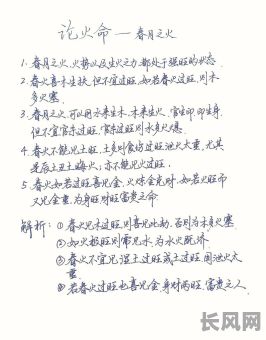 论火命一春月之火
1. 春月之火,火势以及生火之力,都处于强旺的状态.
2. 春火喜木生扶,但不宜过旺,如若春火过旺,则木
多火塞
3. 春月之火,可以用水来生木,木来生火,官生印,印生身.
但不宜官杀过旺,官杀过旺则水多火熄.
4. 春火不能见土旺,土多则食伤过旺泄火太重,尤其
是辰土丑土晦火;亦不能见火过旺.
5 春火如若过旺喜见金,火炼金克财,如若火旺而
又见金重,为身旺财旺富贵之命
解析:①春火见木过旺,则喜见比劫,否则为木多火塞
②如火极旺则需见水,为水火既济
③春火不宜见湿土过旺或土过旺,因泄火太
重
④若春火过旺也喜见金,身财两旺,富贵之人.
长风网